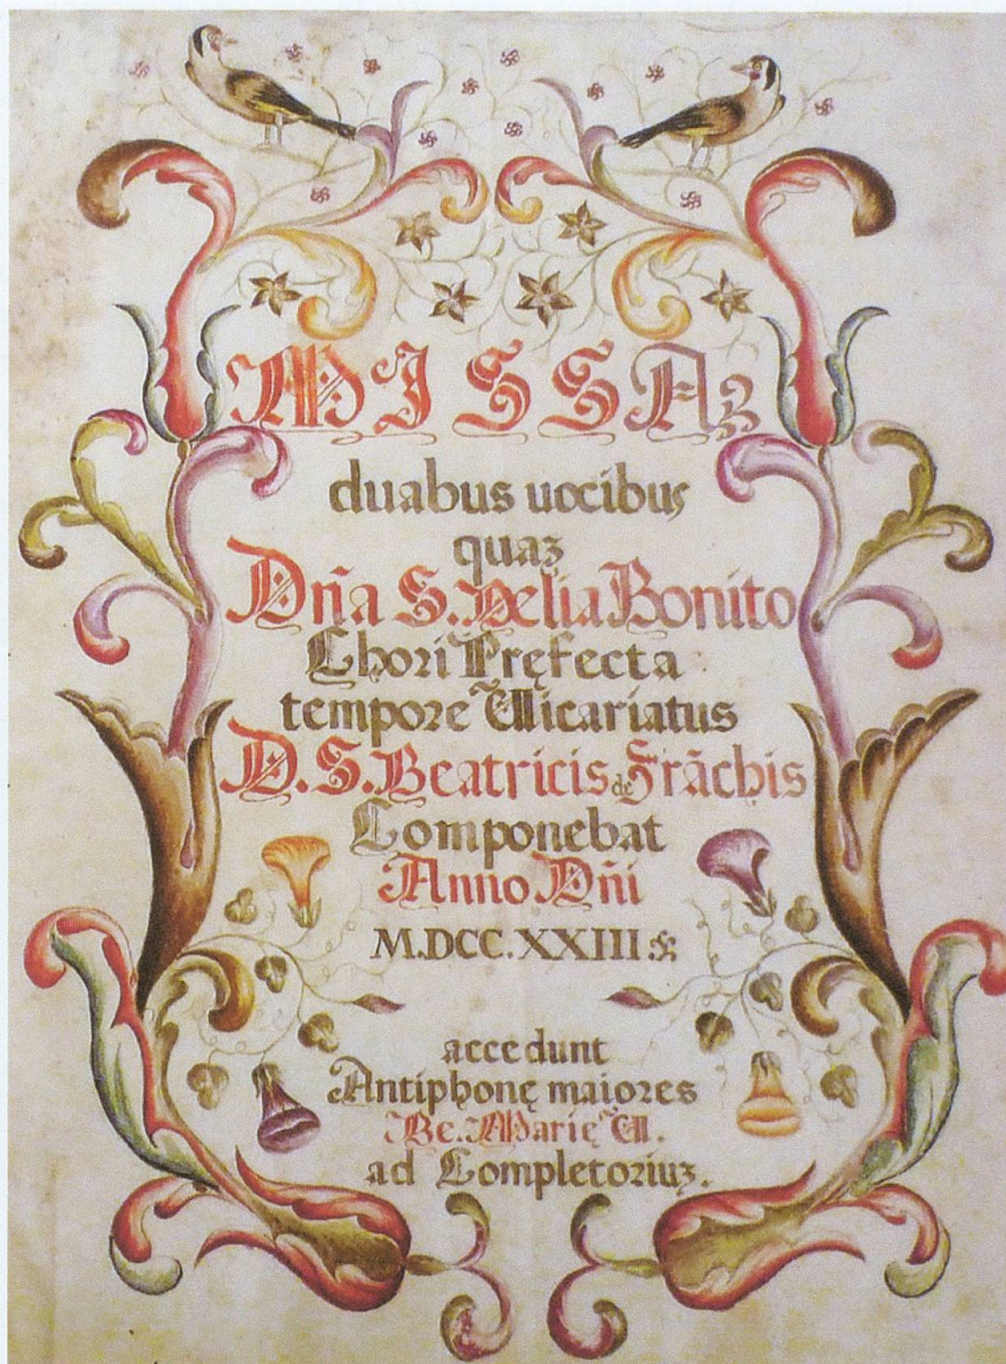 MISSAꝫ
duabus uocibus
quaꝫ
Dn̄a S. Delia Bonito
Chori Pręfecta
tempore Vicariatus
D.S. Beatricis de Frāchis
Componebat
Anno Dn̄i
M.DCC.XXIII
accedunt
Antiphonę maiores
Be. Marię V.
ad Completoriuꝫ.